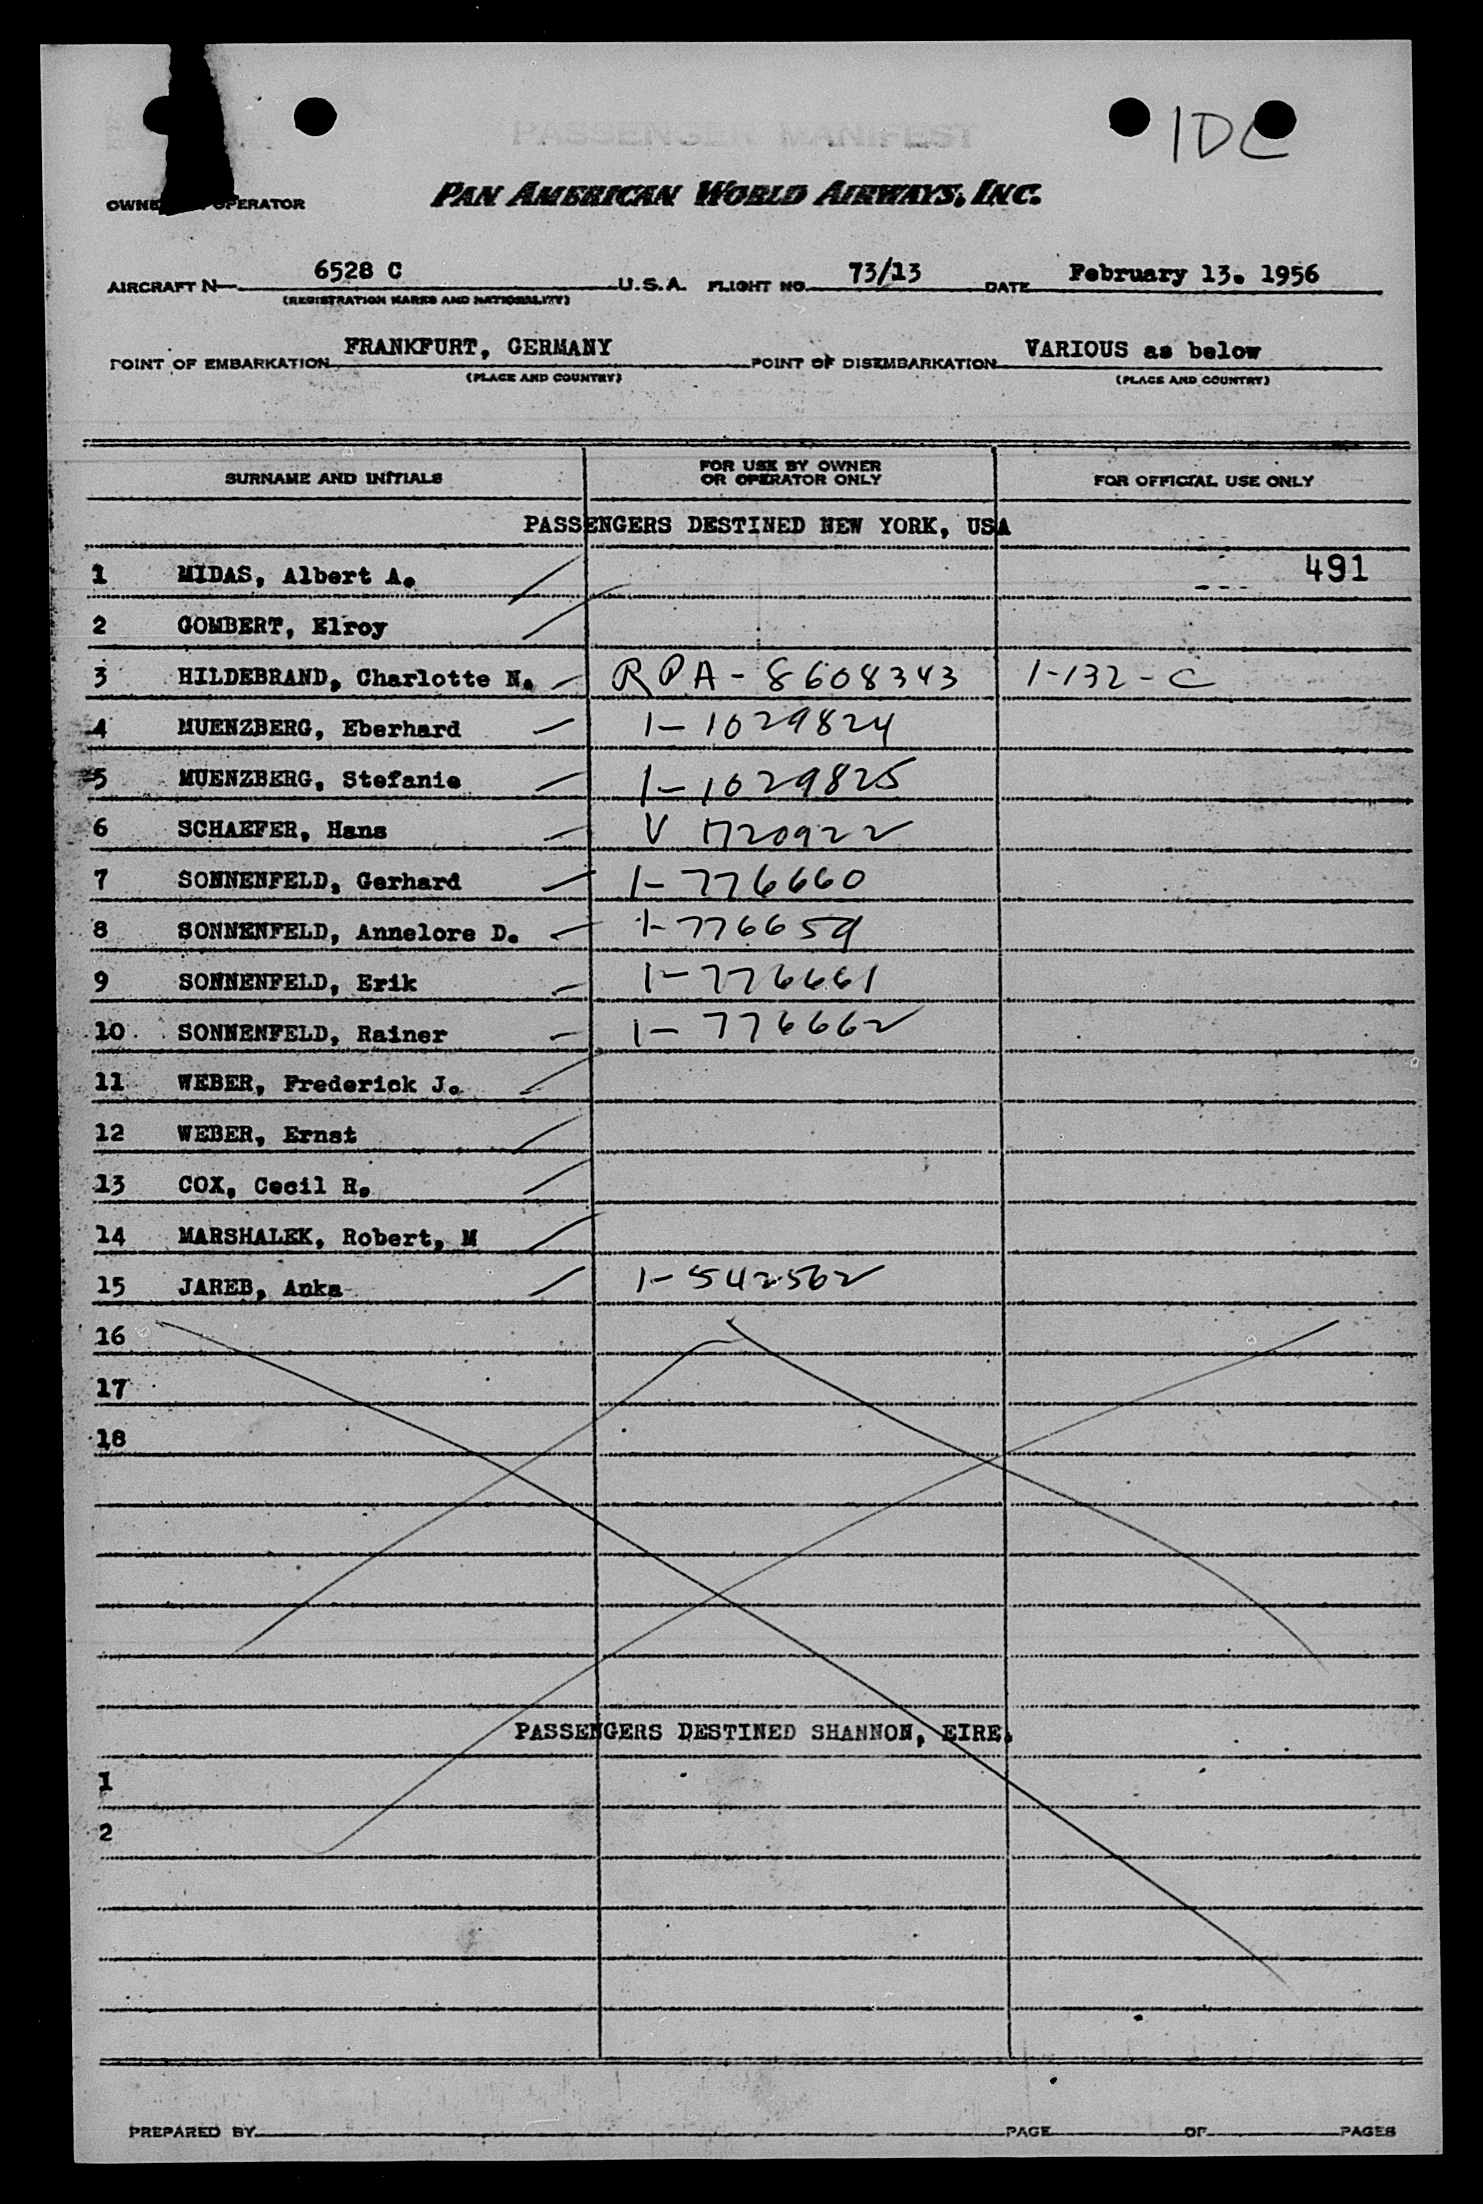 PASSENGER MANIFEST
1DC
OPERATOR
PAN AMERICAN WORLD AIRWAYS, INC.
AIRCRAFT N 6528 C U.S.A. FLIGHT NO. 73/13 DATE February 13. 1956
(REGISTRATION MARKS AND NATIONALITY)
POINT OF EMBARKATION FRANKFURT, GERMANY POINT OF DISEMBARKATION VARIOUS as below
(PLACE AND COUNTRY) (PLACE AND COUNTRY)
SURNAME AND INITIALS FOR USE BY OWNER OR OPERATOR ONLY FOR OFFICIAL USE ONLY
PASSENGERS DESTINED NEW YORK, USA
1 MIDAS, Albert A. 491
2 GOMBERT, Elroy
3 HILDEBRAND, Charlotte N. RPA-8608343 1-132-C
4 MUENZBERG, Eberhard 1-1029824
5 MUENZBERG, Stefanie 1-1029825
6 SCHAEFER, Hans V 1720922
7 SONNENFELD, Gerhard 1-776660
8 SONNENFELD, Annelore D. 1-776659
9 SONNENFELD, Erik 1-776661
10 SONNENFELD, Rainer 1-776662
11 WEBER, Frederick J.
12 WEBER, Ernst
13 COX, Cecil R.
14 MARSHALEK, Robert, M
15 JAREB, Anka 1-542562
16
17
18
PASSENGERS DESTINED SHANNON, EIRE.
1
2
PREPARED BY PAGE OF PAGES